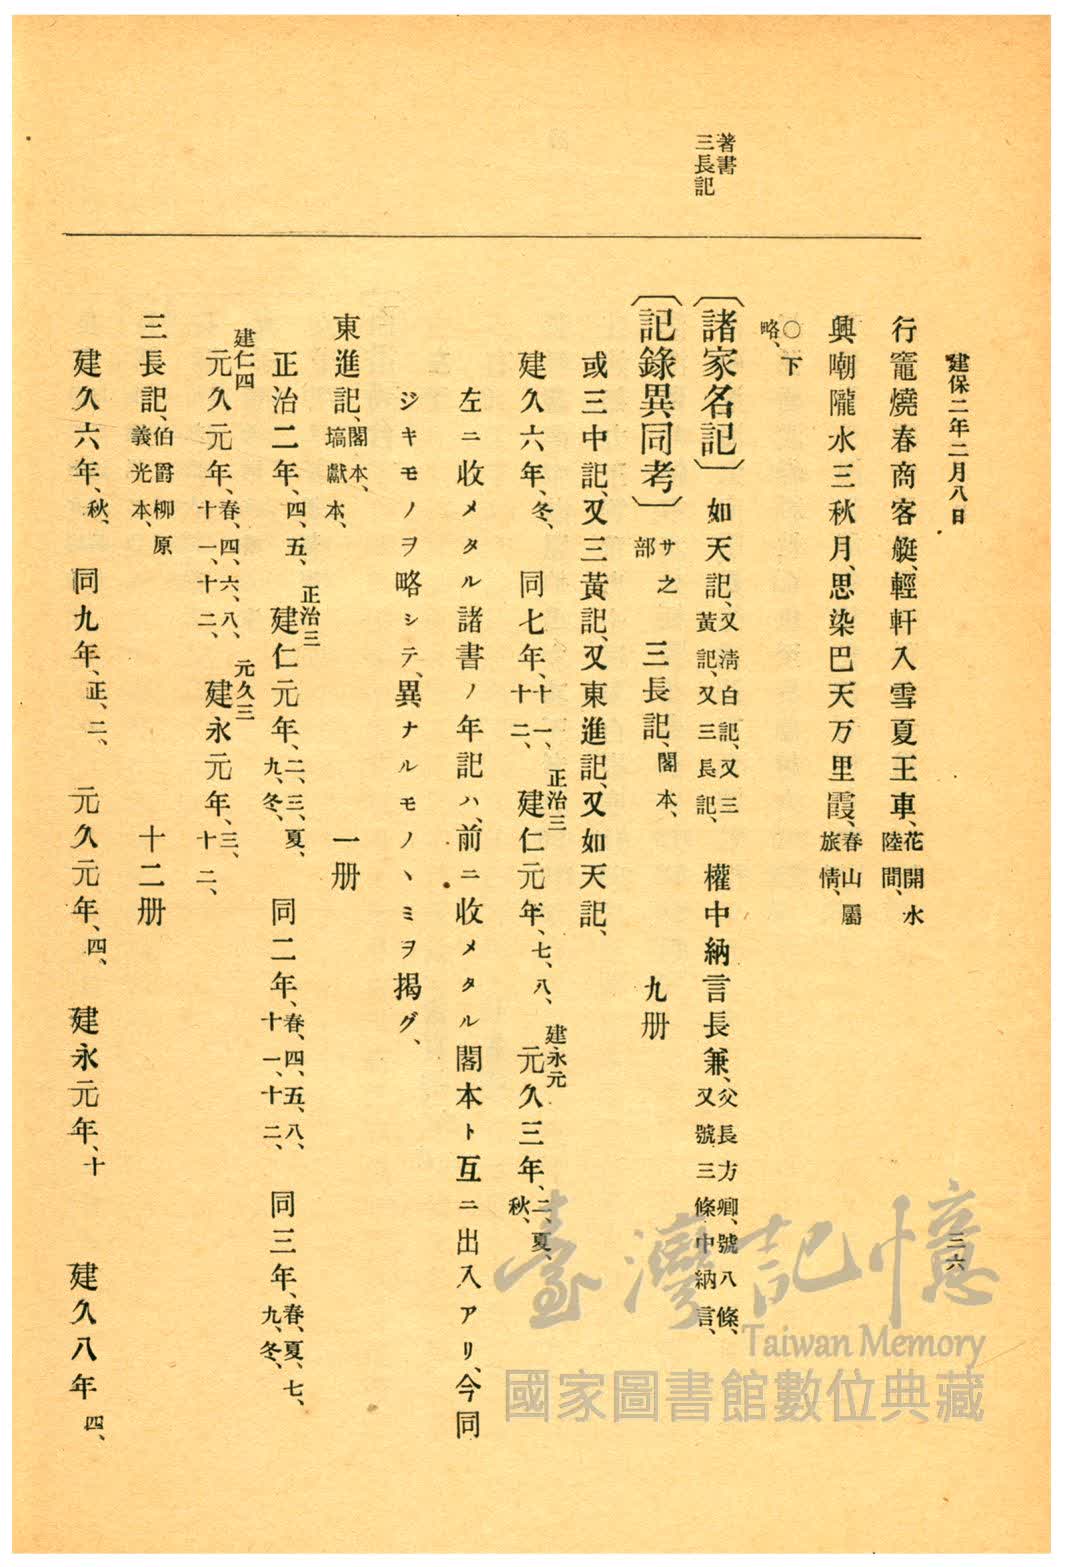 建保二年二月八日
三六
著書
三長記
行竈燒春商客艇、輕軒入雪夏王車、花開水
陸間、
興嘲隴水三秋月、思染巴天万里霞、春山屬
旅情、
○下
略、
〔諸家名記〕 如天記、又淸白記、又三
黃記、又三長記、 權中納言長兼、父長方卿、號八條、
又號三條中納言、
〔記錄異同考〕 サ之
部 三長記、閣本、 九册
或三中記、又三黃記、又東進記、又如天記、
建久六年、冬、 同七年、十一、
十二、 正治三
建仁元年、七、八、 建永元
元久三年、二、夏、
秋、
左ニ收メタル諸書ノ年記ハ、前ニ收メタル閣本ト互ニ出入アリ、今同
ジキモノヲ略シテ、異ナルモノヽミヲ揭グ、
東進記、閣本、
塙獻本、 一册
正治二年、四、五、 正治三
建仁元年、二、三、夏、
九、冬、 同二年、春、四、五、八、
十一、十二、 同三年、春、夏、七、
九、冬、
建仁四
元久元年、春、四、六、八、
十一、十二、 元久三
建永元年、三、
十二、
三長記、伯爵柳原
義光本、 十二册
建久六年、秋、 同九年、正、二、 元久元年、四、 建永元年、十 建久八年四、
臺灣記憶
Taiwan Memory
國家圖書館數位典藏